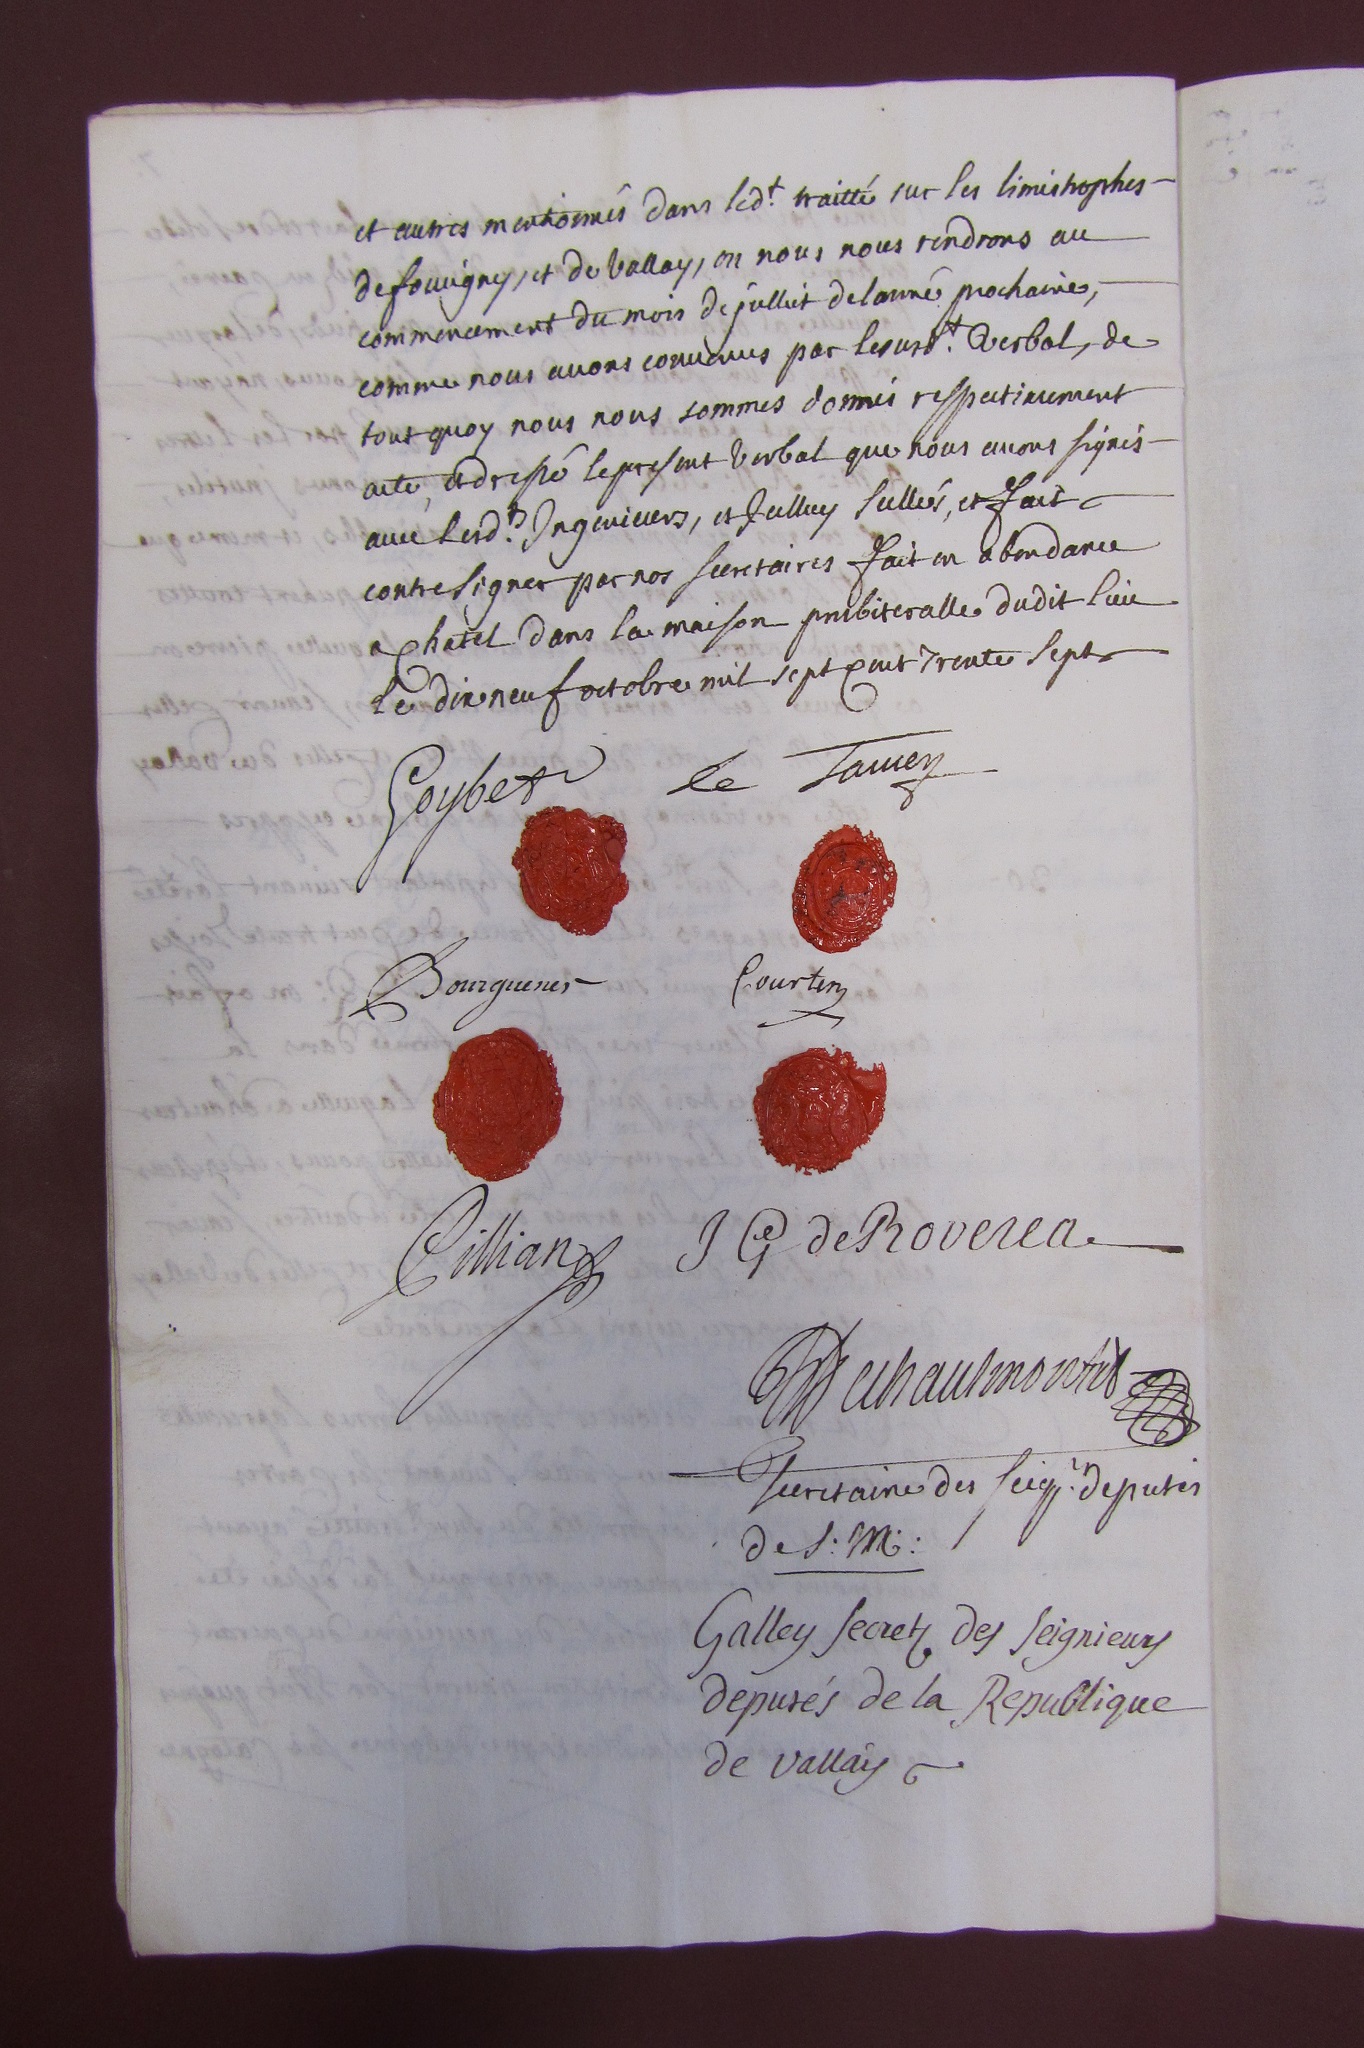 et autres mentionnés dans led.t traitté sur les limistrophes
de fouvigny, et de vallay, où nous nous rendrons au
commencement du mois de juillet delanné prochaine,
comme nous avons convenus par lesusd.t Verbal, de
tout quoy nous nous sommes donnés respectivement
acte, et dressé lepresent verbal que nous avons signés
avec lesd.ts Ingenieurs, et Jcelluy sellés, et fait
contresigner par nos secretaires fait en abondance
a Chatel dans la maison presbiteralle dudit lieu
le dix neuf octobre mil sept Cent Trente sept
Goybet le
Bourguener Courten
Cillian J G de Roverea
Secretaire des seigrs. deputés
de S: M:
Galley secret. des seignieurs
deputés de la Republique
de vallay